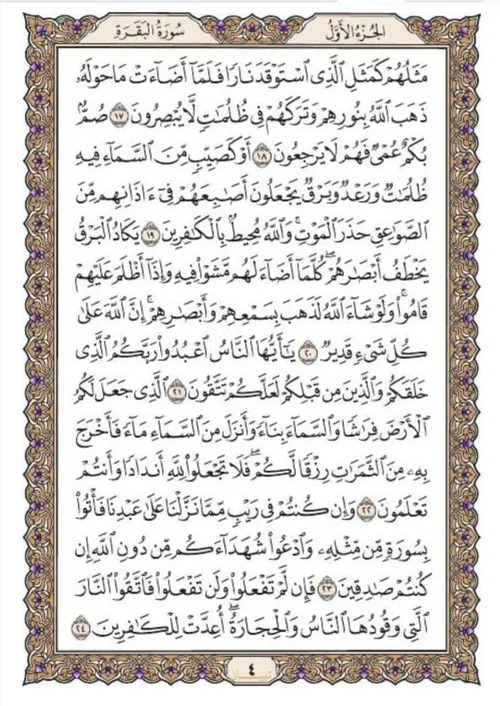 الجزء الأول سورة البقرة
مَثَلُهُمْ كَمَثَلِ ٱلَّذِى ٱسْتَوْقَدَ نَارًا فَلَمَّآ أَضَآءَتْ مَا حَوْلَهُۥ
ذَهَبَ ٱللَّهُ بِنُورِهِمْ وَتَرَكَهُمْ فِى ظُلُمَٰتٍ لَّا يُبْصِرُونَ ١٧ صُمٌّۢ
بُكْمٌ عُمْىٌ فَهُمْ لَا يَرْجِعُونَ ١٨ أَوْ كَصَيِّبٍ مِّنَ ٱلسَّمَآءِ فِيهِ
ظُلُمَٰتٌ وَرَعْدٌ وَبَرْقٌ يَجْعَلُونَ أَصَٰبِعَهُمْ فِىٓ ءَاذَانِهِم مِّنَ
ٱلصَّوَٰعِقِ حَذَرَ ٱلْمَوْتِ ۚ وَٱللَّهُ مُحِيطٌۢ بِٱلْكَٰفِرِينَ ١٩ يَكَادُ ٱلْبَرْقُ
يَخْطَفُ أَبْصَٰرَهُمْ ۖ كُلَّمَآ أَضَآءَ لَهُم مَّشَوْا۟ فِيهِ وَإِذَآ أَظْلَمَ عَلَيْهِمْ
قَامُوا۟ ۚ وَلَوْ شَآءَ ٱللَّهُ لَذَهَبَ بِسَمْعِهِمْ وَأَبْصَٰرِهِمْ ۚ إِنَّ ٱللَّهَ عَلَىٰ
كُلِّ شَىْءٍ قَدِيرٌ ٢٠ يَٰٓأَيُّهَا ٱلنَّاسُ ٱعْبُدُوا۟ رَبَّكُمُ ٱلَّذِى
خَلَقَكُمْ وَٱلَّذِينَ مِن قَبْلِكُمْ لَعَلَّكُمْ تَتَّقُونَ ٢١ ٱلَّذِى جَعَلَ لَكُمُ
ٱلْأَرْضَ فِرَٰشًا وَٱلسَّمَآءَ بِنَآءً وَأَنزَلَ مِنَ ٱلسَّمَآءِ مَآءً فَأَخْرَجَ
بِهِۦ مِنَ ٱلثَّمَرَٰتِ رِزْقًا لَّكُمْ ۖ فَلَا تَجْعَلُوا۟ لِلَّهِ أَندَادًا وَأَنتُمْ
تَعْلَمُونَ ٢٢ وَإِن كُنتُمْ فِى رَيْبٍ مِّمَّا نَزَّلْنَا عَلَىٰ عَبْدِنَا فَأْتُوا۟
بِسُورَةٍ مِّن مِّثْلِهِۦ وَٱدْعُوا۟ شُهَدَآءَكُم مِّن دُونِ ٱللَّهِ إِن
كُنتُمْ صَٰدِقِينَ ٢٣ فَإِن لَّمْ تَفْعَلُوا۟ وَلَن تَفْعَلُوا۟ فَٱتَّقُوا۟ ٱلنَّارَ
ٱلَّتِى وَقُودُهَا ٱلنَّاسُ وَٱلْحِجَارَةُ ۖ أُعِدَّتْ لِلْكَٰفِرِينَ ٢٤
٤